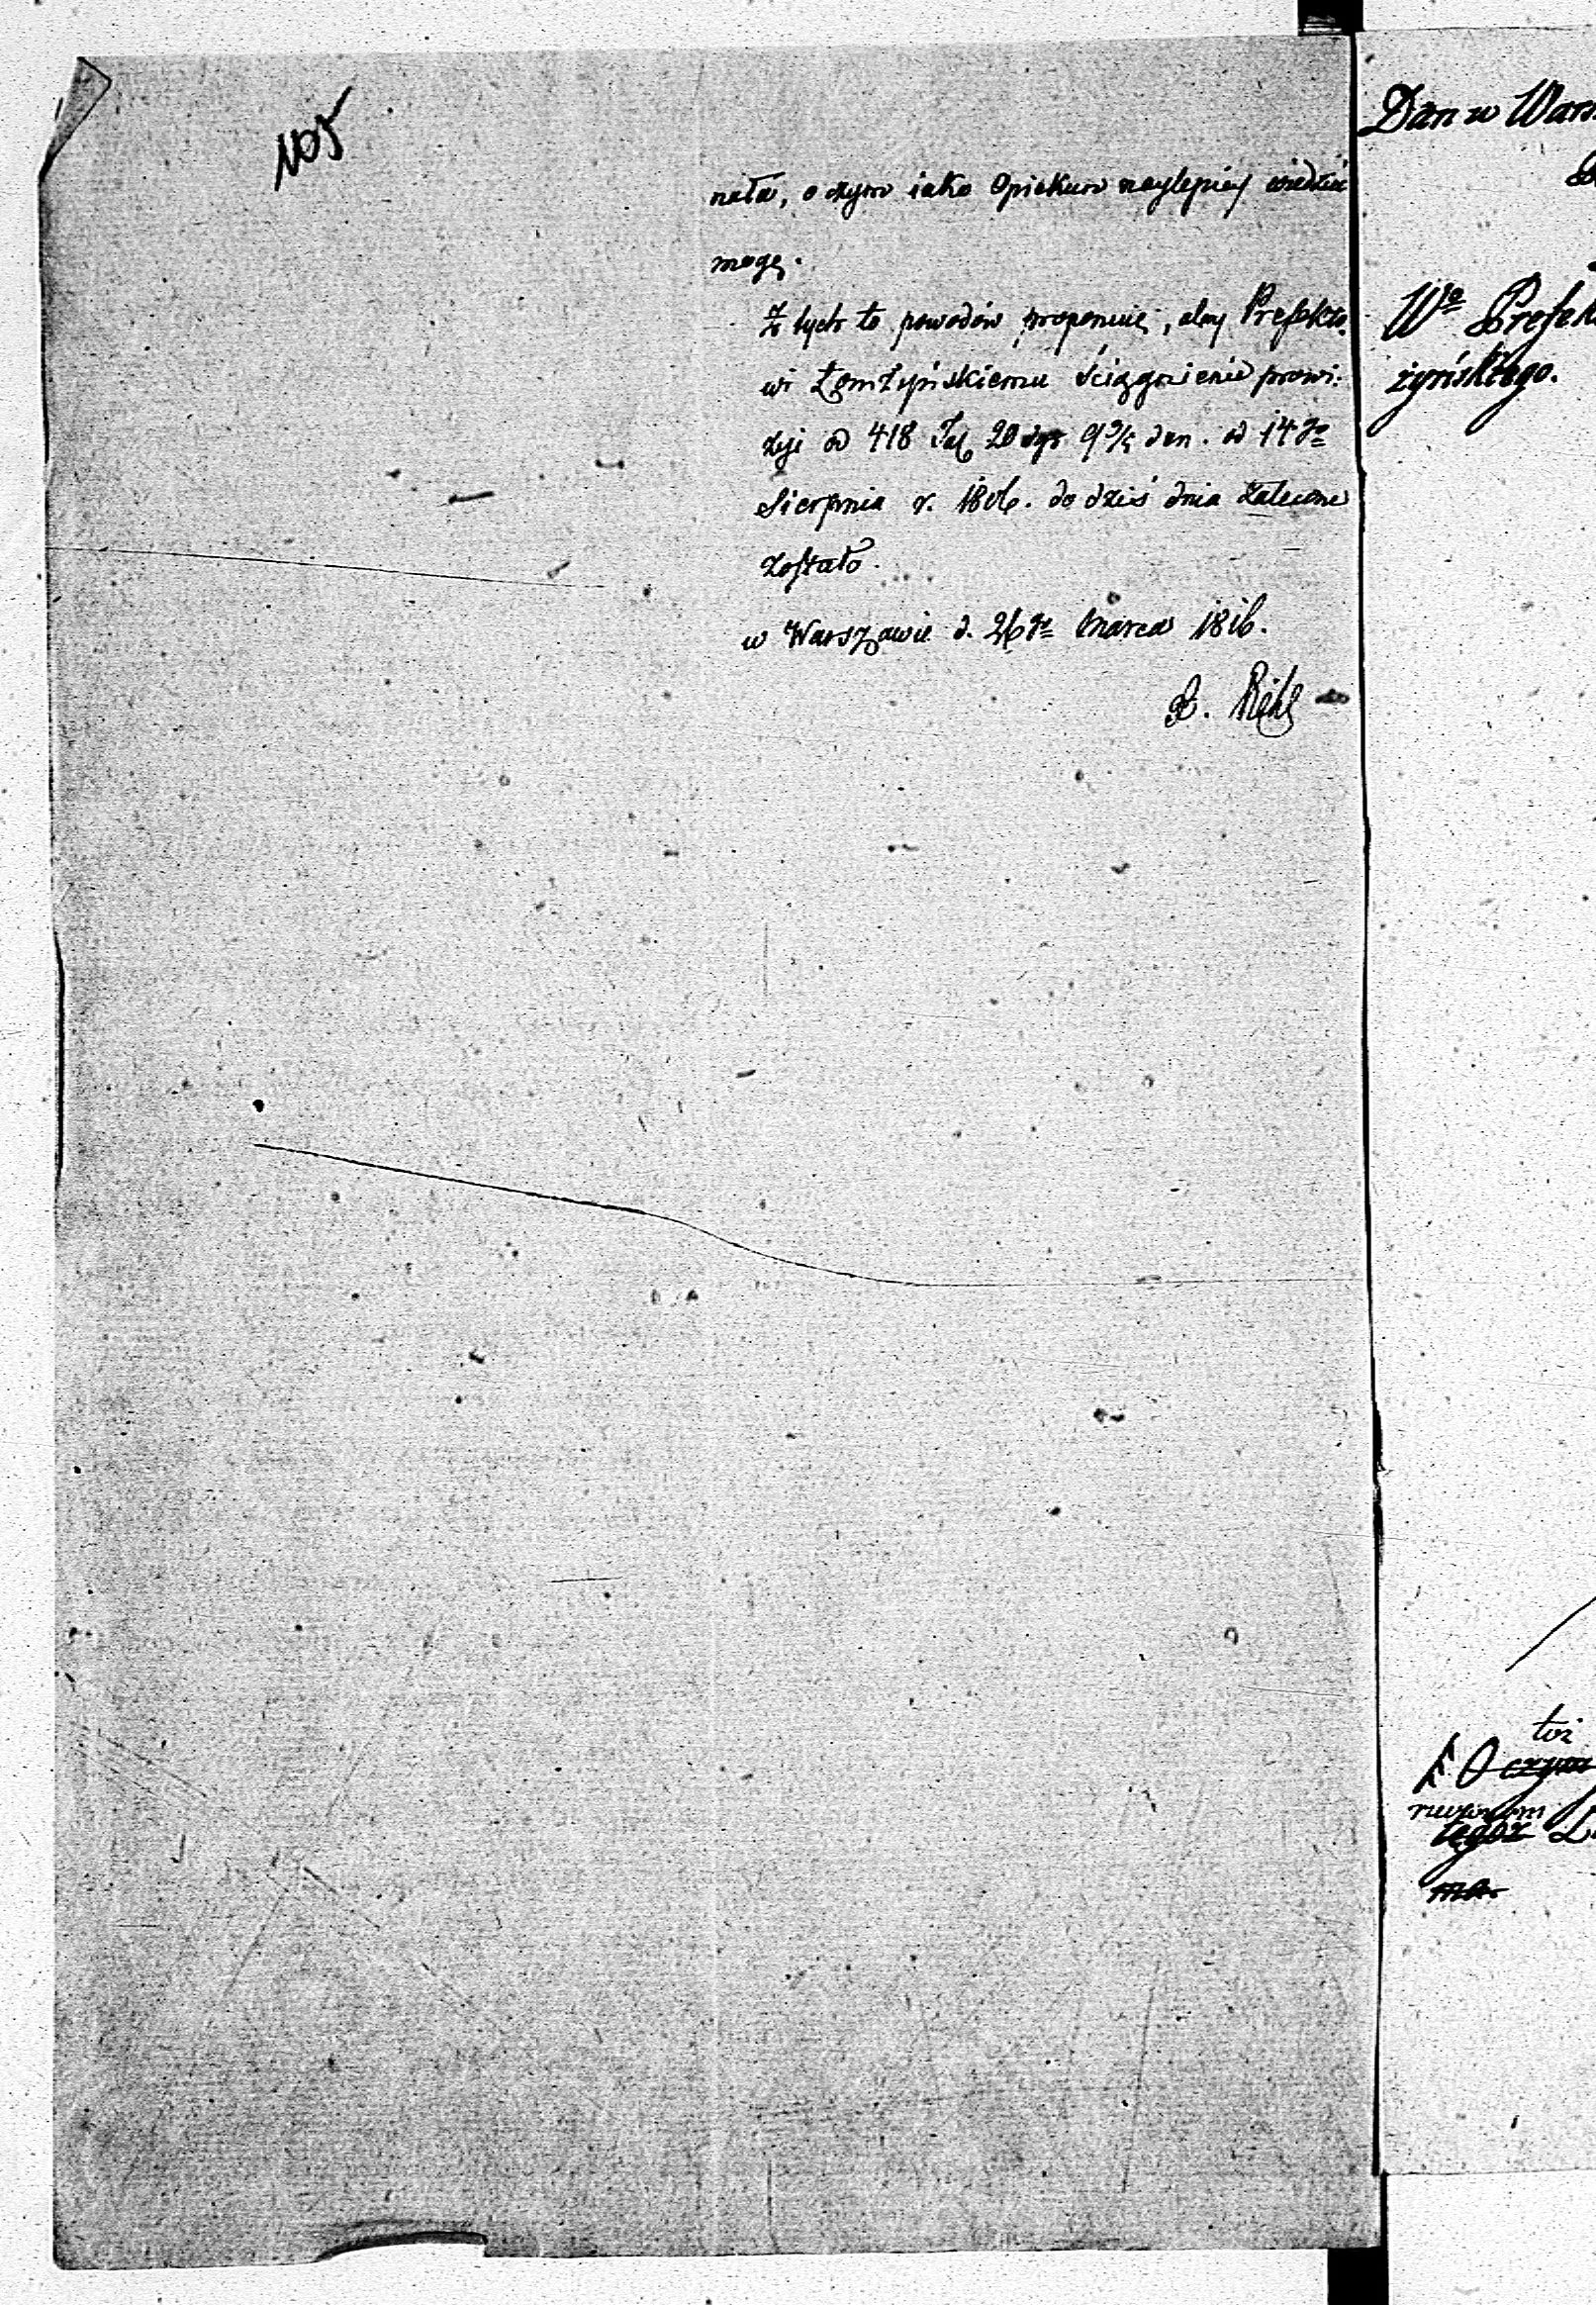 105
nała, o czym iako Opiekun naylepiey wiedzieć
mogę.
Z tych to powodów proponuię, aby Prefekto,
wi Łomżyńskiemu ściągnienie prowi:
zyi od 418 Tal. 20 dgr 9 3/5 den. od 14go
Sierpnia r. 1806. do dziś dnia zalecone
zostało.
w Warszawie d. 26go Marca 1816.
Rihl
Dan w Wars
Wo Prefek
żyńskiego.
toż
O czym
tegoż
ma.